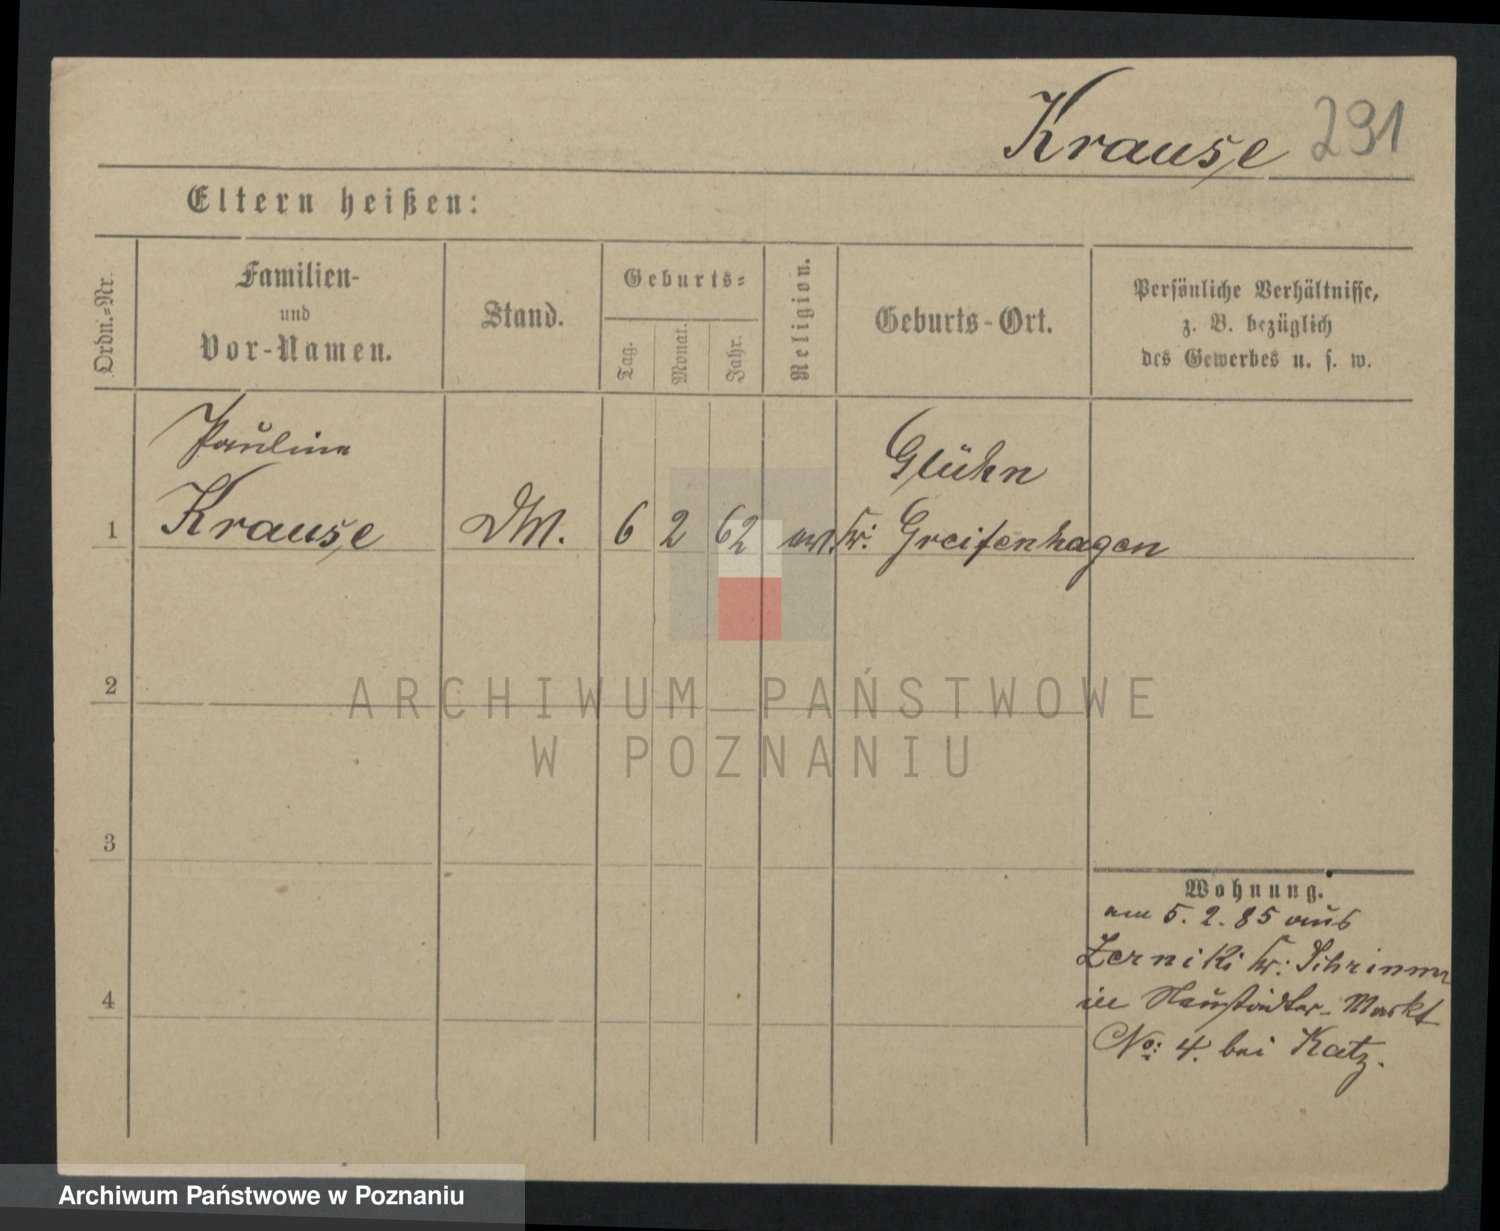 Krause 291
Eltern heißen:
Ordn.=Nr.
Familien-
und
Vor-Namen.
Stand.
Geburts=
Tag.
Monat.
Jahr.
Religion.
Geburts-Ort.
Persönliche Verhältnisse,
z. B. bezüglich
des Gewerbes u. s. w.
Pauline
Krause
Glühn
1 DM. 6 2 62 ev. Kr: Greifenhagen
2
3
4
Wohnung.
am 5. 2. 85 aus
Zerniki Kr: Schrimm
in Neustädter-Markt
No: 4. bei Katz.
ARCHIWUM PAŃSTWOWE
W POZNANIU
Archiwum Państwowe w Poznaniu